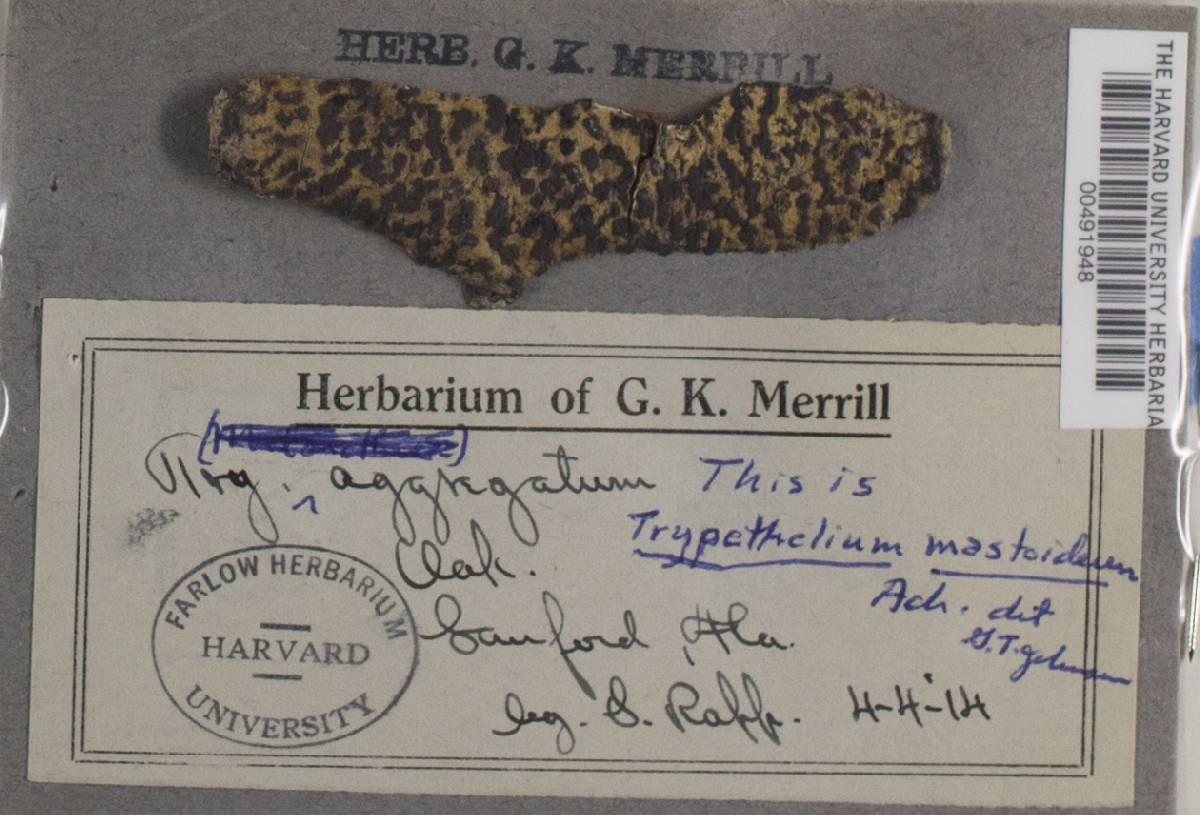 HERB. G. K. MERRILL
THE HARVARD UNIVERSITY HERBARIA
00491948
Herbarium of G. K. Merrill
aggregatum This is
Trypethelium mastoideum
Oak.
Ach. det
Sanford, Fla.
G. T. Johnson
leg. S. Rapp. 4-4-14
FARLOW HERBARIUM
HARVARD
UNIVERSITY